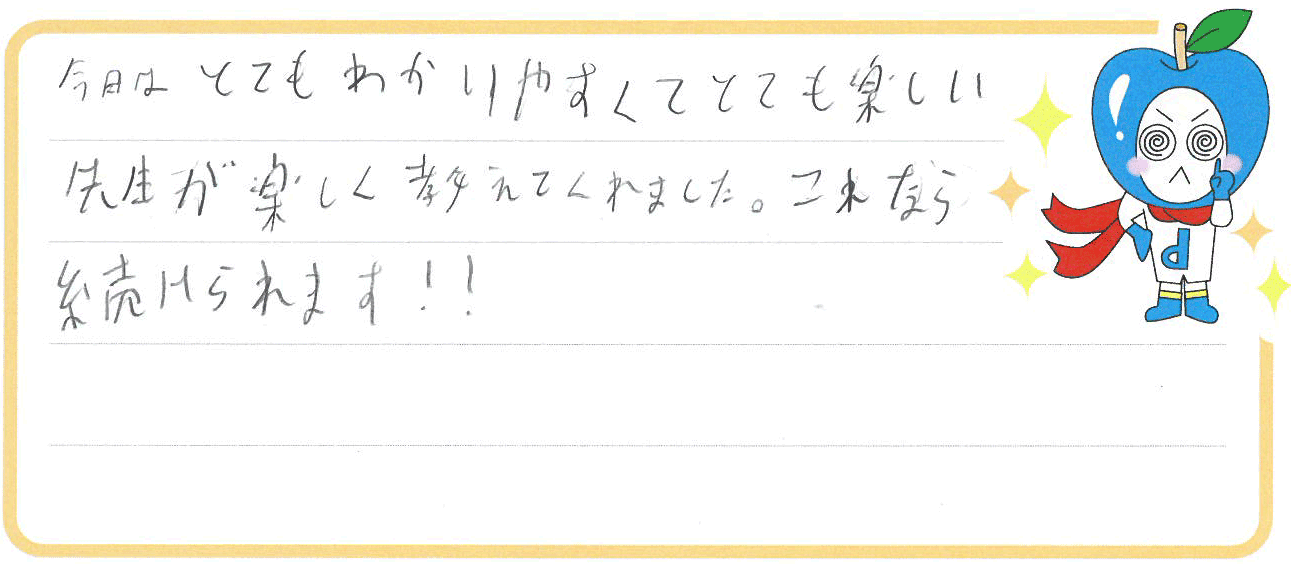 今日はとてもわかりやすくてとても楽しい
先生が楽しく教えてくれました。これなら
続けられます!!
d